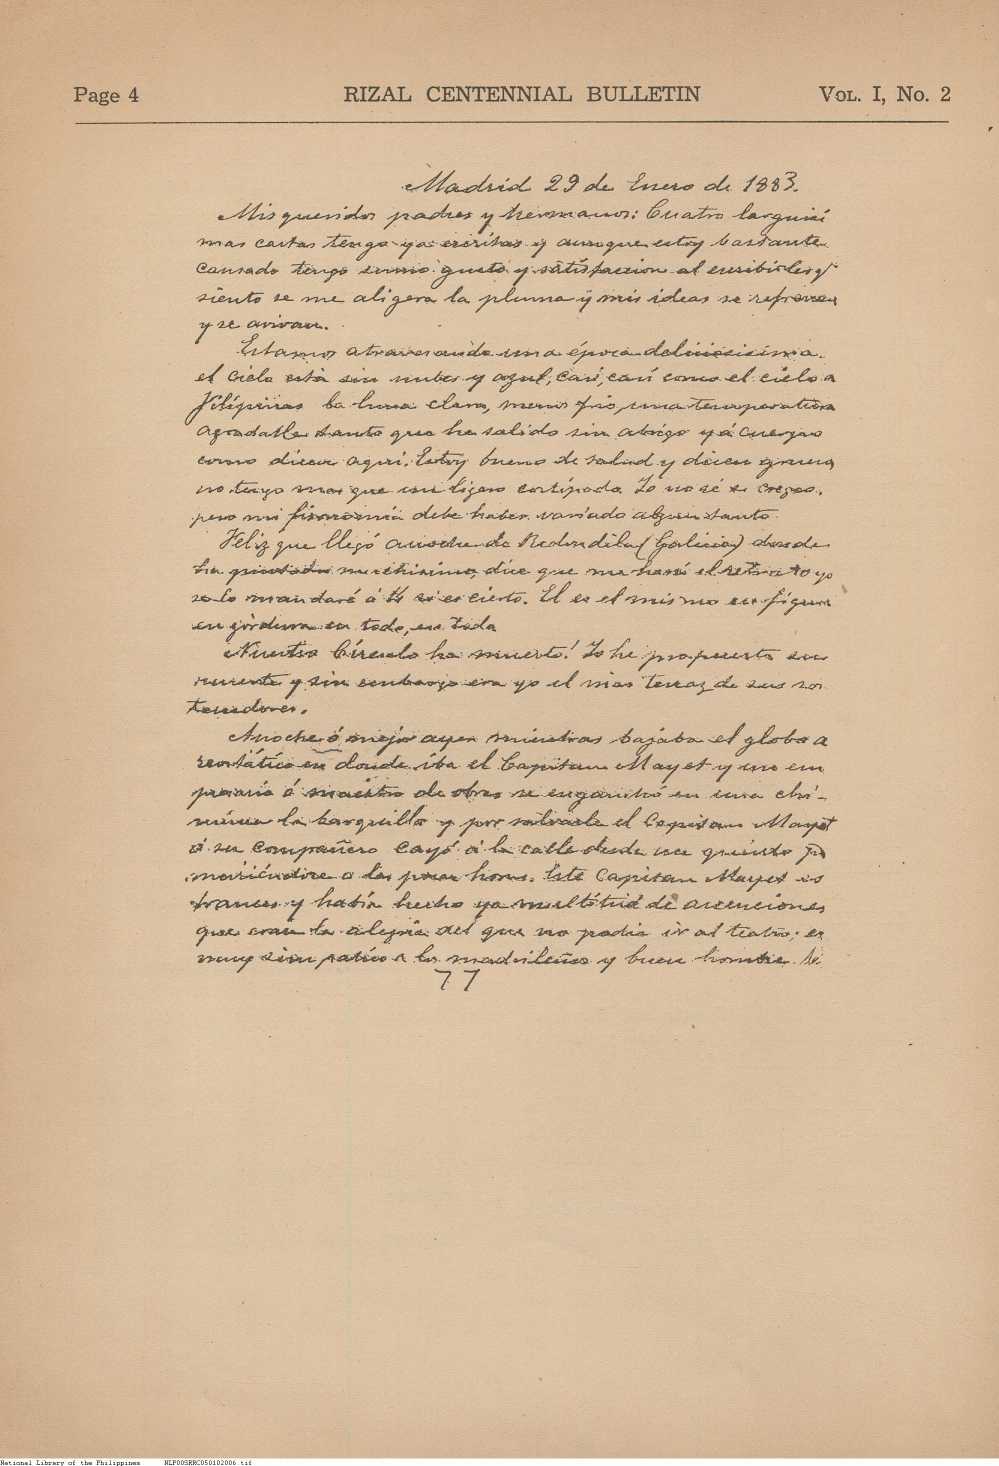 Page 4 RIZAL CENTENNIAL BULLETIN VOL. I, No. 2
Madrid 29 de Enero de 1883.
Mis queridos padres y hermanos: Cuatro larguisi
mas cartas tengo ya escritas y aunque estoy bastante
cansado tengo sumo gusto y satisfaccion al escribirles y
siento se me aligera la pluma y mis ideas se refrescan
y se avivan.
Estamos atravesando una época deliciosisima.
el cielo está sin nubes y azul, casi, casi como el cielo a
Filipinas la luna clara, menos frio, una temperatura
agradable tanto que he salido sin abrigo y á cuerpo
como dicen aqui. Estoy bueno de salud y dicen grueso,
no tengo mas que un ligero costipado. Yo no sé si crezco,
pero mi fisonomia debe haber variado algun tanto.
Feliz que llegó anoche de Redondela (Galicia) donde
ha pintado muchisimo, dice que me hará el retrato yo
se lo mandaré á V si es cierto. El es el mismo en figura
en gordura en todo, en todo
Nuestro Círculo ha muerto! Yo he propuesto su
muerte y sin embargo era yo el mas tenaz de sus sos
tenedores.
Anoche ó mejor ayer mientras bajaba el globo a
reostático en donde iba el Capitan Mayet y un em
presario ó maestro de obras se enganchó en una chi-
menea la barquilla y por salvarle el Capitan Mayet
á su compañero cayó á la calle desde un quinto piso
muriéndose a las pocas horas. Este Capitan Mayet es
frances y había hecho ya multitud de ascenciones
que eran la alegria del que no podia ir al teatro; es
muy simpatico a los madrileños y buen hombre.
77
National Library of the Philippines NLP00SRRC050102006.tif